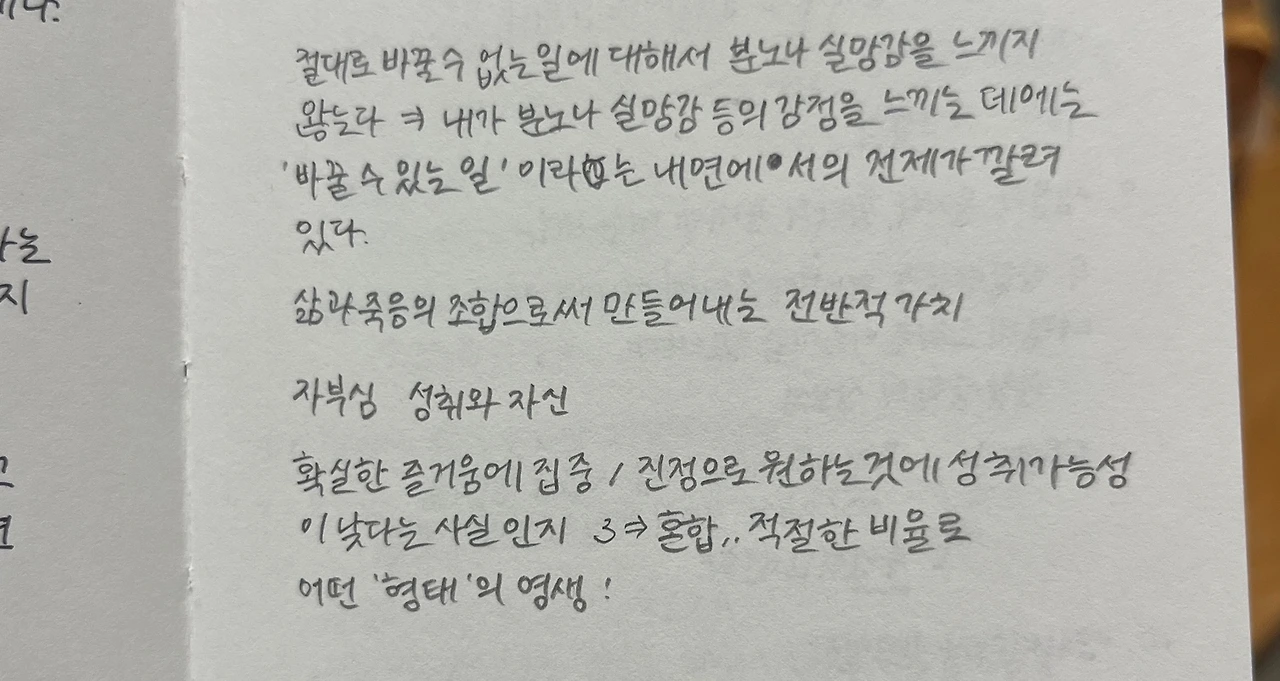 절대로 바꿀 수 없는 일에 대해서 분노나 실망감을 느끼지
않는다 ⇒ 내가 분노나 실망감 등의 감정을 느끼는 데에는
'바꿀 수 있는 일' 이라는 내면에서의 전제가 깔려
있다.
삶과 죽음의 조합으로써 만들어내는 전반적 가치
자부심 성취와 자신
확실한 즐거움에 집중 / 진정으로 원하는 것에 성취가능성
이 낮다는 사실 인지 3⇒ 혼합.. 적절한 비율로
어떤 '형태'의 영생!
니다.
는
지